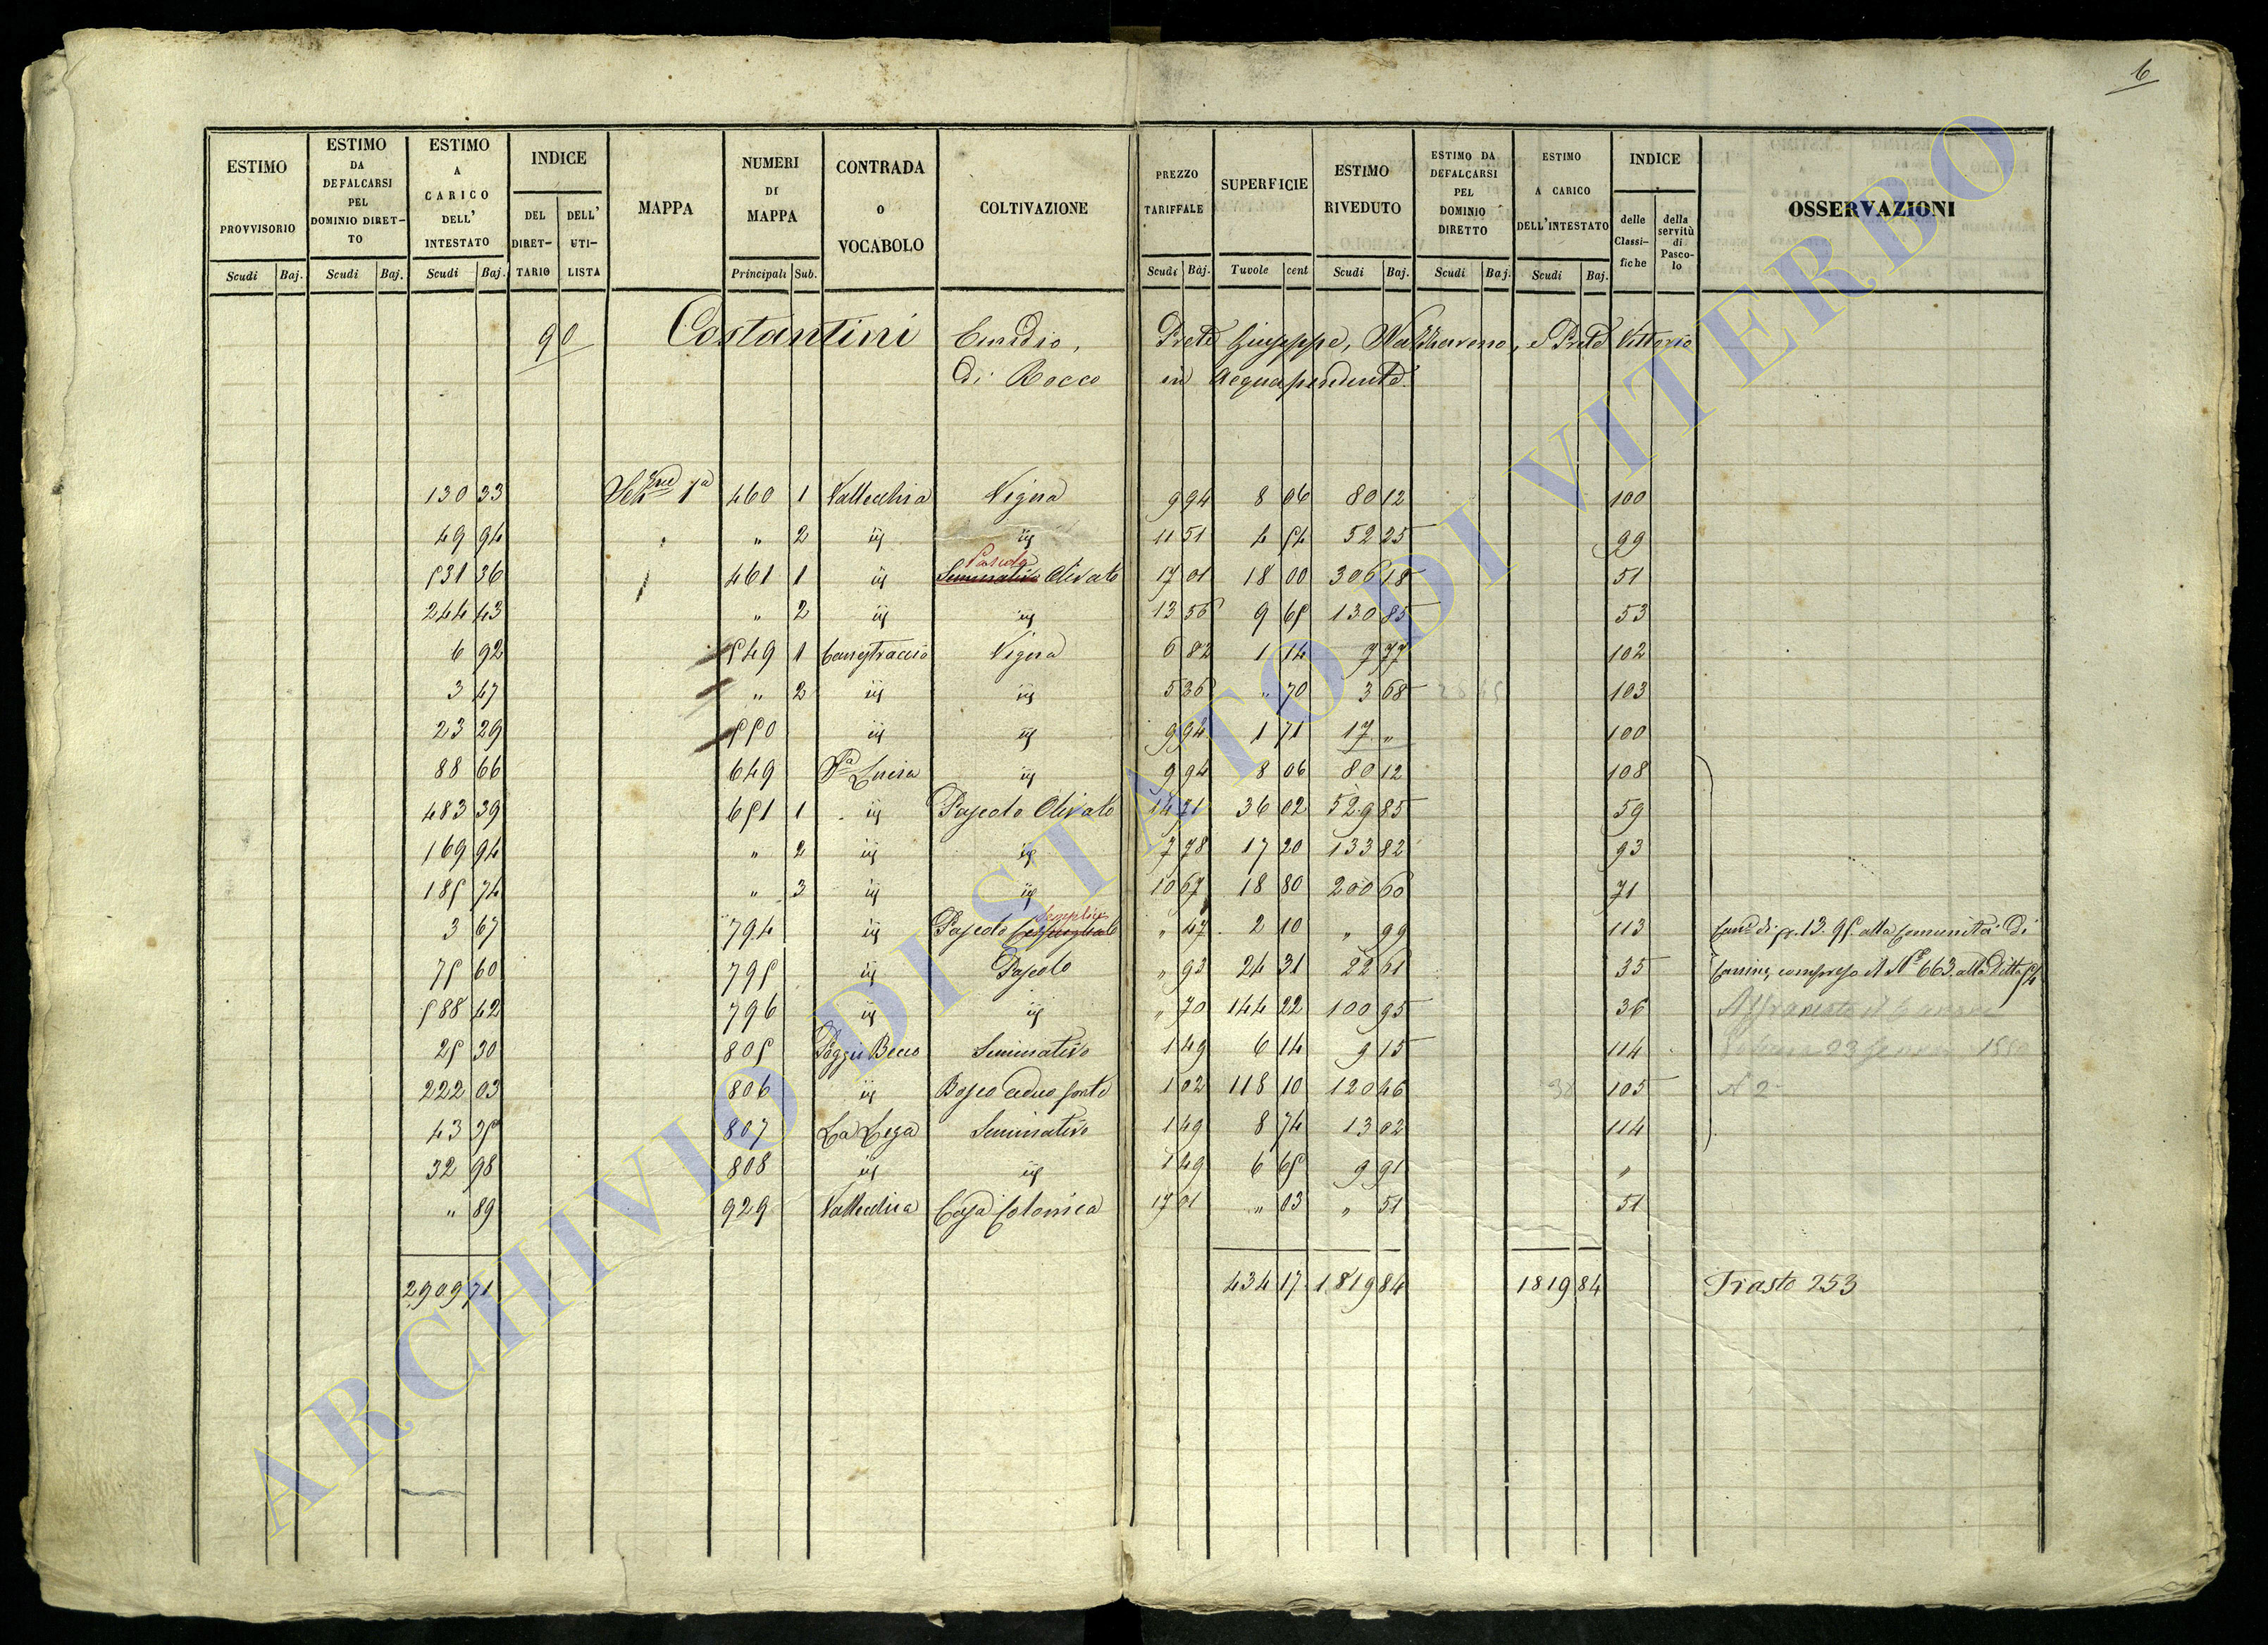 6
ESTIMO PROVVISORIO Scudi Baj.
ESTIMO DA DEFALCARSI PEL DOMINIO DIRETTO Scudi Baj.
ESTIMO A CARICO DELL' INTESTATO Scudi Baj.
INDICE DEL DIRETTARIO DELL' UTILISTA
MAPPA
NUMERI DI MAPPA Principali Sub.
CONTRADA o VOCABOLO
COLTIVAZIONE
PREZZO TARIFFALE Scudi Baj.
SUPERFICIE Tavole cent
ESTIMO RIVEDUTO Scudi Baj.
ESTIMO DA DEFALCARSI PEL DOMINIO DIRETTO Scudi Baj.
ESTIMO A CARICO DELL'INTESTATO Scudi Baj.
INDICE delle Classifiche della servitù di Pascolo
OSSERVAZIONI
90 Costantini Emidio, Prete Giuseppe, e Prete Vittorio
di Rocco in Acquapendente
130 33 1a 460 1 Vallecchia Vigna 9 94 8 06 80 12 100
49 94 " 2 iij iij 11 51 4 54 52 25 99
Pascolo
531 36 461 1 iij Seminativo Olivato 17 01 18 00 306 18 51
244 43 " 2 iij iij 13 56 9 65 130 85 53
6 92 549 1 Vigna 6 82 1 14 7 77 102
3 47 " 2 iij iij 5 26 " 70 3 68 103
23 29 550 iij iij 9 94 1 71 17 " 100
88 66 649 Sa Lucia iij 9 94 8 06 80 12 108
483 39 651 1 iij Pascolo Olivato 14 71 36 02 529 85 59
169 94 " 2 iij iij 7 78 17 20 133 82 93
185 74 " 3 iij iij 10 67 18 80 200 60 71
semplice
3 67 794 iij Pascolo Cespugliato " 47 2 10 " 99 113 alla Comunità di
75 60 795 iij Pascolo " 93 24 31 22 61 35 compreso il 663 alla Ditta
588 42 796 iij iij " 70 144 22 100 95 36
25 30 805 Poggio Becco Seminativo 1 49 6 14 9 15 114
222 03 806 iij Bosco ceduo forte 1 02 118 10 120 46 105 N 2
43 25 807 La Lega Seminativo 1 49 8 74 13 02 114
32 98 808 iij iij 1 49 6 65 9 91 "
" 89 929 Vallecchia Casa Colonica 17 01 " 03 " 51 51
2909 71 434 17 1819 84 1819 84 Trasto 253
ARCHIVIO DI STATO DI VITERBO